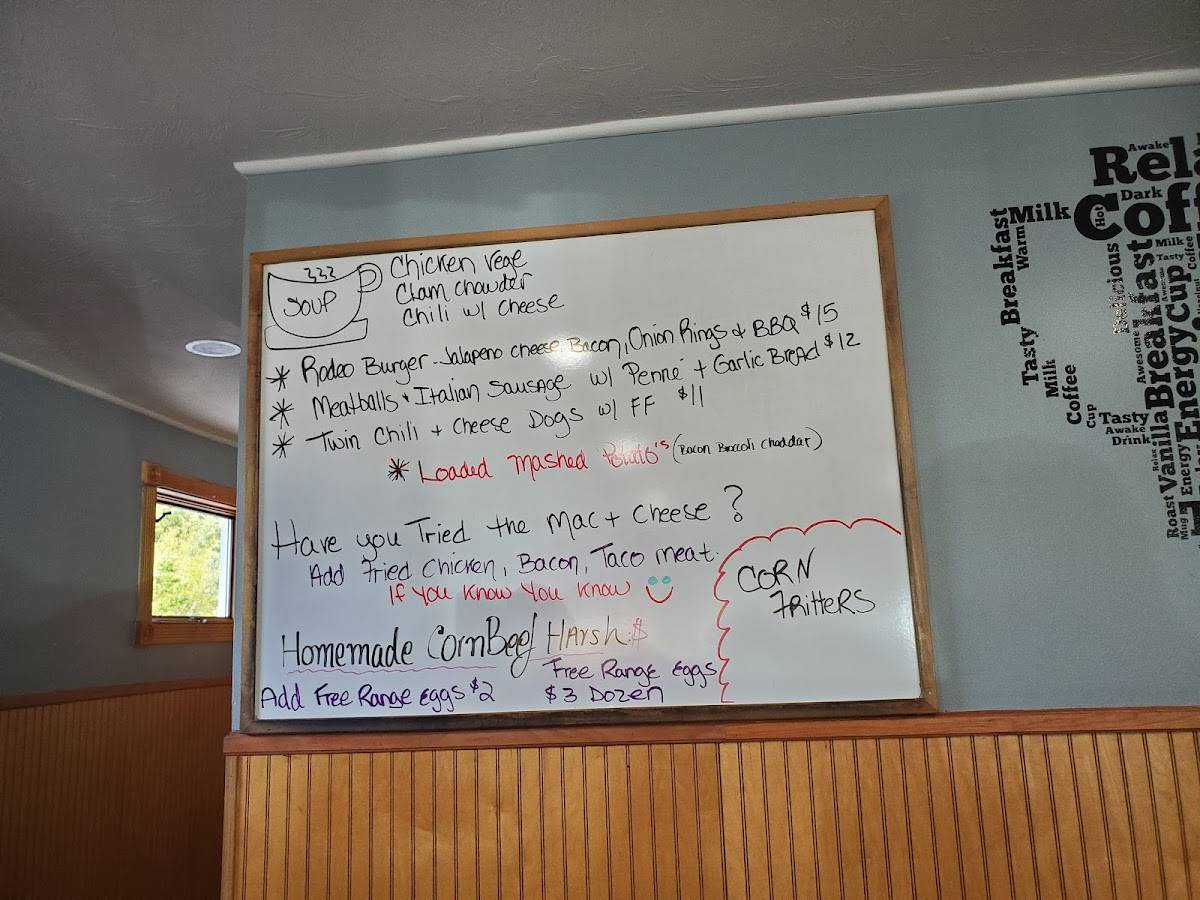 SOUP
Chicken Vege
Clam chowder
Chili w/ cheese
* Rodeo Burger - Jalapeno cheese, Bacon, Onion Rings + BBQ $15
* Meatballs + Italian Sausage w/ Penne + Garlic Bread $12
* Twin Chili + Cheese Dogs w/ FF $11
* Loaded Mashed Potato's (Bacon Broccoli Cheddar)
Have you Tried the Mac + Cheese?
Add Fried Chicken, Bacon, Taco meat.
If You Know You Know
Homemade CornBeef Harsh $
Add Free Range Eggs $2
Free Range Eggs
$3 Dozen
CORN
FRITTERS
Awake
Rela
Dark
Milk
Hot
Coff
Breakfast
Warm
Milk
Coffee
Tasty
Delicious
Tasty
Breakfast
Energy
Cup
Awesome
Milk
Coffee
Cup
Tasty
Awake
Drink
Vanilla
Relax
Roast
Mug
Energy